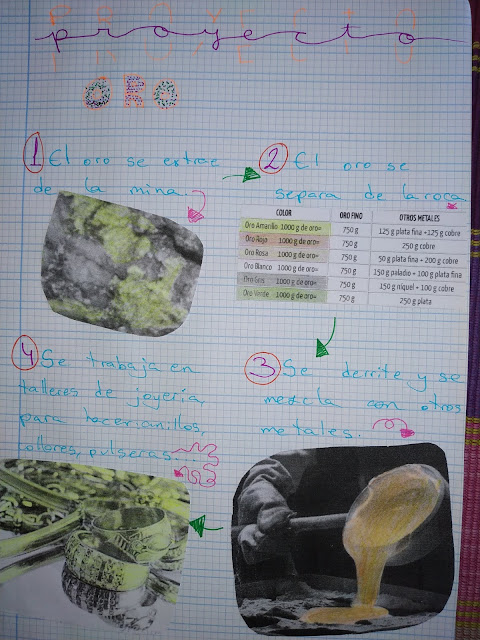 proyecto
ORO
1 El oro se extrae
de la mina.
2 El oro se
separa de la roca
COLOR ORO FINO OTROS METALES
Oro Amarillo 1000 g de oro= 750 g 125 g plata fina +125 g cobre
Oro Rojo 1000 g de oro= 750 g 250 g cobre
Oro Rosa 1000 g de oro= 750 g 50 g plata fina + 200 g cobre
Oro Blanco 1000 g de oro= 750 g 150 g paladio + 100 g plata fina
Oro Gris 1000 g de oro= 750 g 150 g níquel + 100 g cobre
Oro Verde 1000 g de oro= 750 g 250 g plata
3 Se derrite y se
mezcla con otros
metales.
4 Se trabaja en
talleres de joyería,
para hacer anillos,
collares, pulseras...